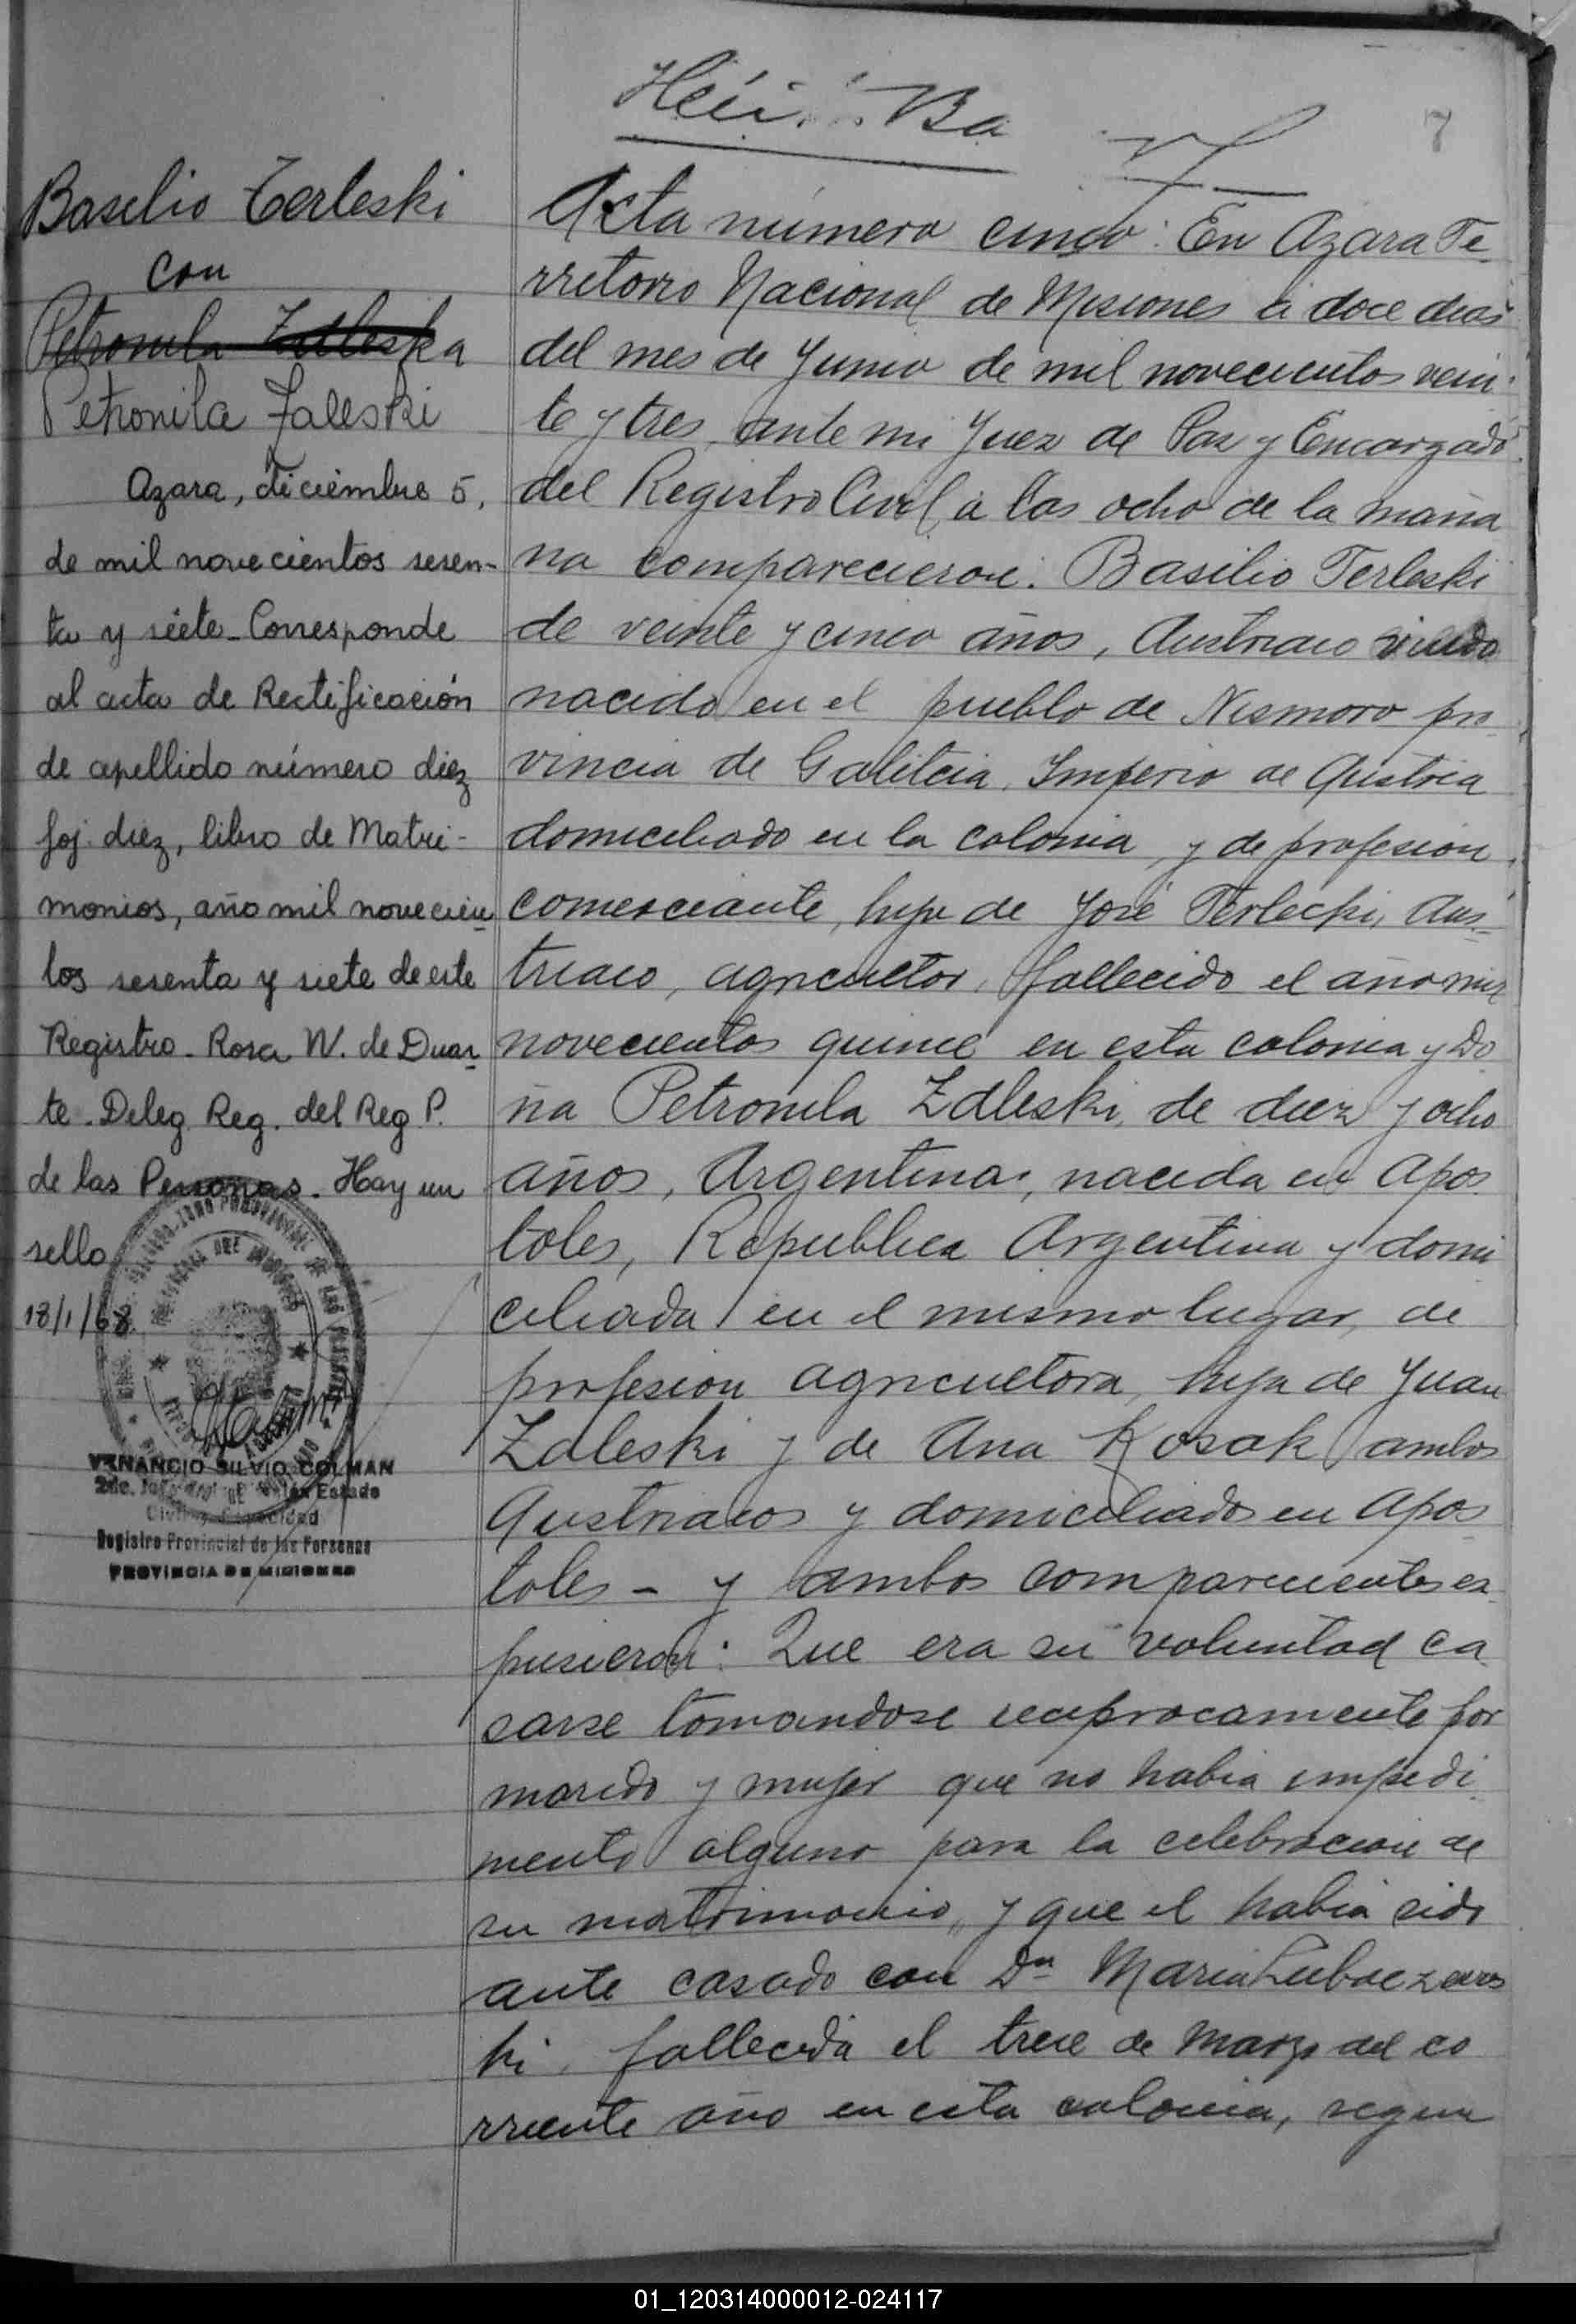 7
Basilio Terleski
con
Petronila Zdleska
Petronila Zaleski
Azara, diciembre 5,
de mil novecientos sesen-
ta y siete. Corresponde
al acta de Rectificación
de apellido número diez
foj. diez, libro de Matri-
monios, año mil novecien
tos sesenta y siete de este
Registro. Rosa W. de Duar
te. Deleg. Reg. del Reg. P.
de las Personas. Hay un
sello
18/1/68
VENANCIO SILVIO COLMAN
Registro Provincial de las Personas
PROVINCIA DE MISIONES
Acta número cinco: En Azara Te
rritorio Nacional de Misiones a doce dias
del mes de Junio de mil novecientos vein
te y tres, ante mi Juez de Paz y Encargado
del Registro Civil, a las ocho de la maña
na comparecieron: Basilio Terleski
de veinte y cinco años, Austriaco viudo
nacido en el pueblo de Nismoro pro
vincia de Galitcia, Imperio de Austria
domiciliado en la colonia y de profesion
comerciante, hijo de José Terlecki, Aus
triaco, agricultor, fallecido el año mil
novecientos quince en esta colonia y Do
ña Petronila Zdleski, de diez y ocho
años, Argentina, nacida en Apos
toles, Republica Argentina y domi
ciliada en el mismo lugar, de
profesion agricultora, hija de Juan
Zdleski y de Ana Kosak ambos
Austriacos y domiciliados en Apos
toles - y ambos comparecientes ex
pusieron: Que era su voluntad ca
sarse tomandose reciprocamente por
marido y mujer que no habia impedi
mento alguno para la celebracion de
su matrimonio, y que el habia sido
ante casado con Dª Maria
ki, fallecida el trece de Marzo del co
rriente año en esta colonia, segun
01_120314000012-024117